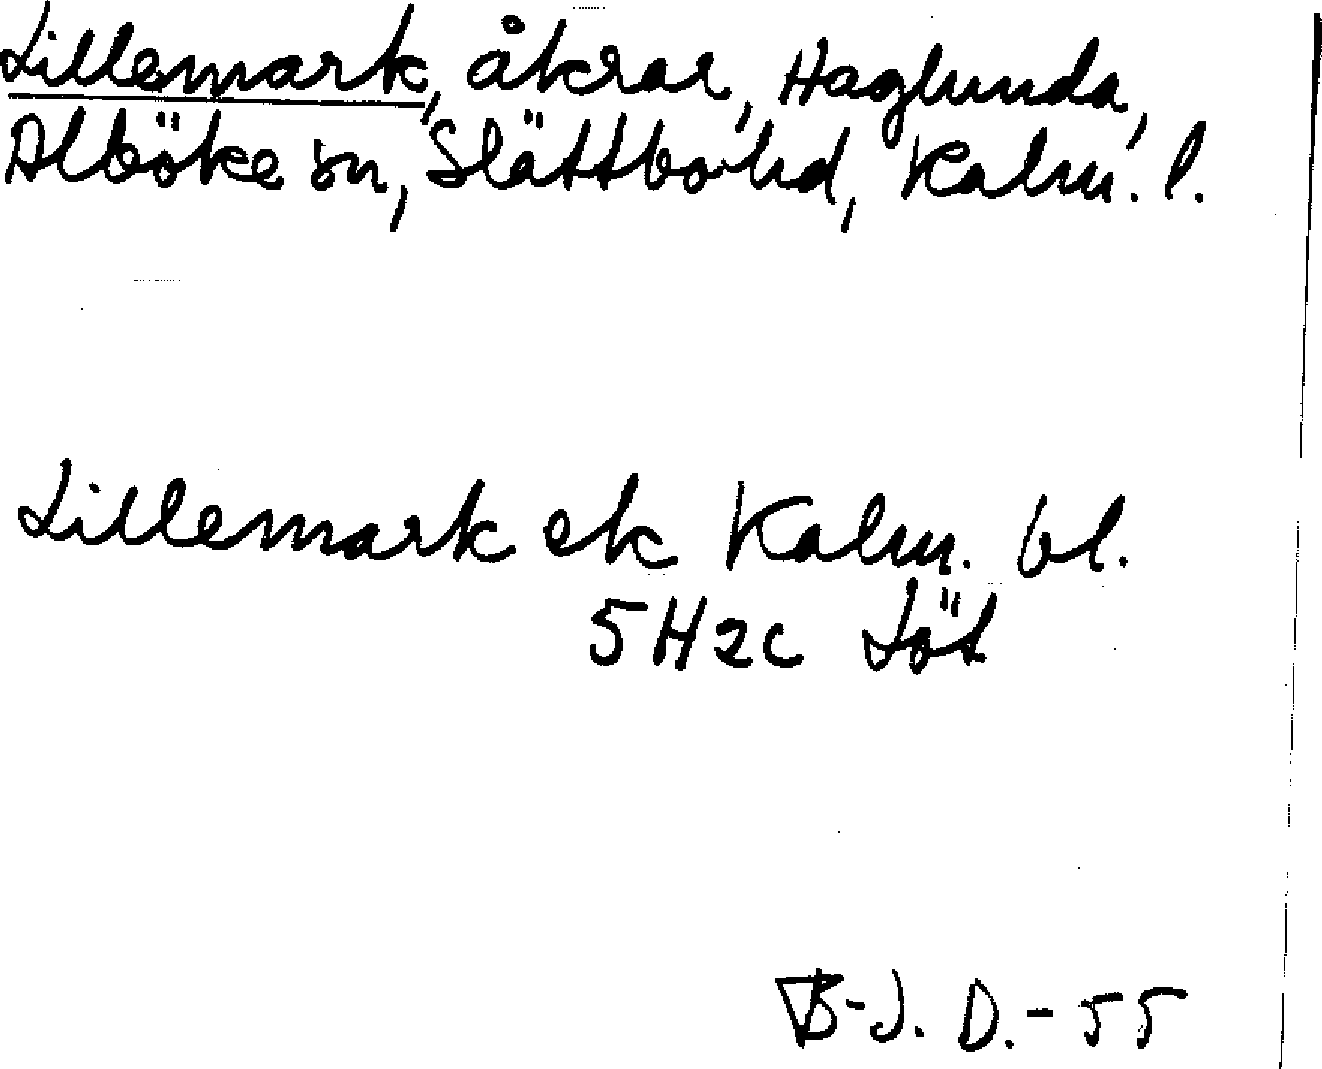 Lillemark, åkrar, Haglunda,
Alböke sn, Slättbo hd, Kalm. l.
Lillemark ek Kalm. bl.
5H2c Löt
B-J. D.-55